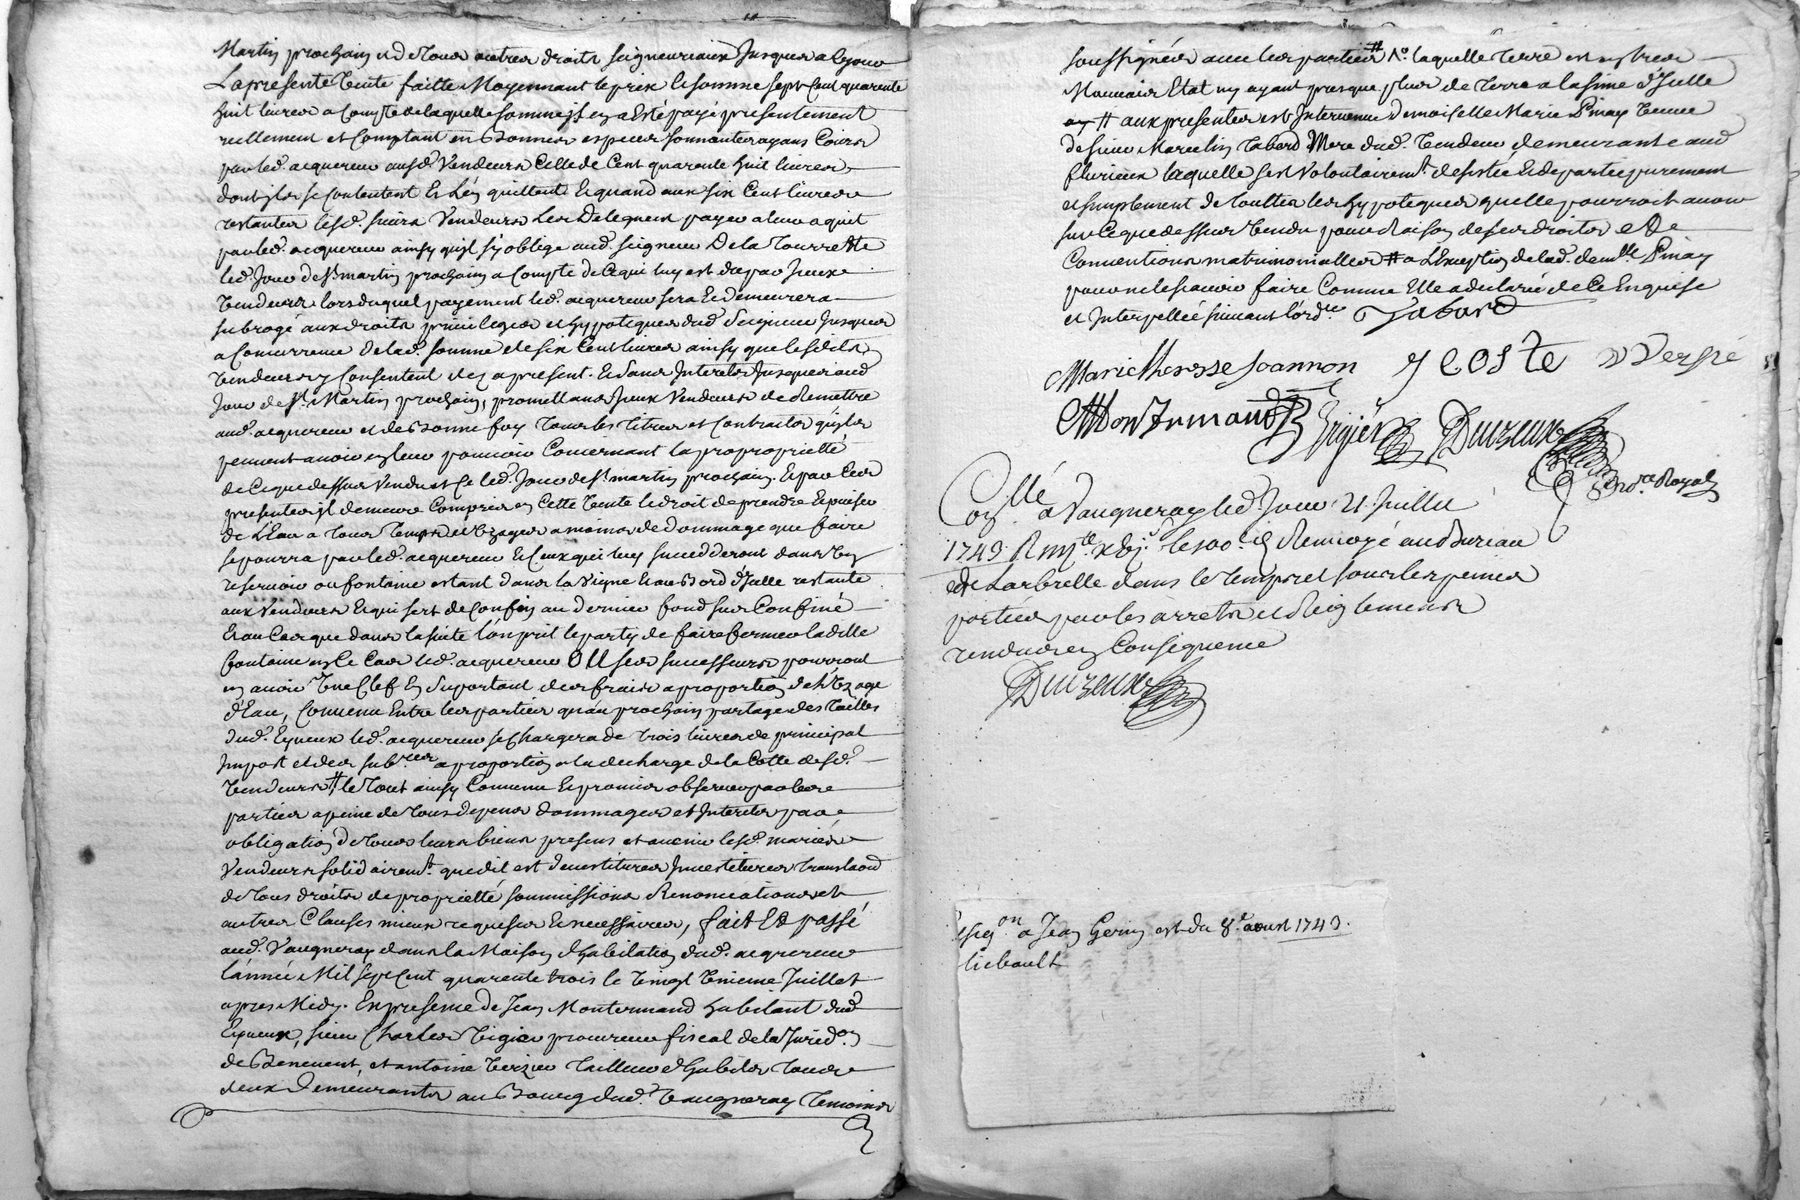 Martin prochain et de tous autres droits seigneuriaux jusques a ce jour
La presente vente faitte Moyennant le prix et somme sept cent quarente
huit livres a compte de laquelle somme il en a esté payé presentement
reellement et comptant en bonnes especes sonnantes ayans cours
par led. acquereur ausd. vendeurs celle de cent quarente huit livres
dont ils se contentent et l'en quittent et quand aux six cent livres
restantes lesd. sieurs vendeurs les deleguent payer a leur aquit
par led. acquereur ainsy qu'il s'y oblige aud. seigneur De la Tourrette
led. jour de St. martin prochain a compte de ce qui luy est du par iceux
vendeurs lors duquel payement led. acquereur sera et demeurera
subrogé aux droits privileges et hypoteques dud. Seigneur jusques
a concurrence de lad. somme de six cent livres ainsy que lesdits
vendeurs y consentent dez a present. Et sans interets jusques aud
jour de St. Martin prochain, promettans iceux vendeurs de remettre
aud. acquereur et de bonne foy tous les titres et contraits qu'ils
peuvent avoir en leur pouvoir concernant la proprieté
de ce que dessus vendu et ce led. jour de St. martin prochain. Et par ces
presentes il demeure compris en cette vente le droit de prendre et puiser
de l'Eau a tous temps et usages a moins de dommage que faire
se pourra par led. acquereur et ceux qui luy succederont dans un
reservoir ou fontaine estant dans la vigne et au bord d'icelle restante
aux vendeurs et qui sert de confin au dernier fond sus confiné
Et au cas que dans la suite l'on prit le party de faire fermer ladite
fontaine en ce cas led. acquereur OU ses successeurs pourront
en avoir une clef en suportant des fraix a proportion de l'uzage
d'Eau, Convenu Entre les parties qu'au prochain partage des tailles
dud. Eyveux led. acquereur se chargera de trois livres de principal
Impost et des sub.res a proportion a la decharge de la Cotte desd.
vendeurs # le tout ainsy convenu et promis observer par les
parties a peine de tous depens dommages et interets par
obligation de tous leurs biens presens et avenir lesd. mariés
vendeurs solidairemt. que dit est devestitures investitures translaon
de tous droits de proprietté soumissions Renonciations et
autres clauses mieux requises et necessaires, fait Et passé
aud. Vaugneray dans la Maison d'habitation dud. acquereur
l'année Mil sept cent quarente trois le vingt unieme Juillet
apres Midy. En presence de Jean Montermand habitant dud
Eyveux, sieur Charles Vigier procureur fiscal de la Jurid.on
de Benevent, et antoine Verzier tailleur d'habits tous
deux demeurants au Bourg dud. Vaugneray temoins
soussignés avec les parties # No. laquelle terre est en tres
Mauvais Etat n'y ayant presque plus de terre a la sime d'Icelle
# aux presentes est Intervenue Demoiselle Marie Pinay veuve
de sieur Marcelin Tabard Mere dud. vendeur demeurante aud
fleurieux laquelle s'est volontairemt. desistée et departie purement
et simplement de touttes les hypoteques qu'elle pourroit avoir
sur ce que dessus vendu pour raison de ses droits et de
Conventions matrimonialles # a L'Exception de lad. demlle Pinay
pour ne le sçavoir faire Comme Elle a declaré de ce Enquise
et Interpellée suivant l'ord.ce Tabard
Marie theresse Joannon J COSTe A Versié
J Montermand Vigier Duizeux
no.re Royal
Con.llé a Vaugneray led. jour 21 Juillet
1743
de Larbrelle dans le temps et sous les peines
portées par les arrets et Reiglements
rendus en Consequence
Duizeux
a Jean Gerin est du 8e aoust 1743.